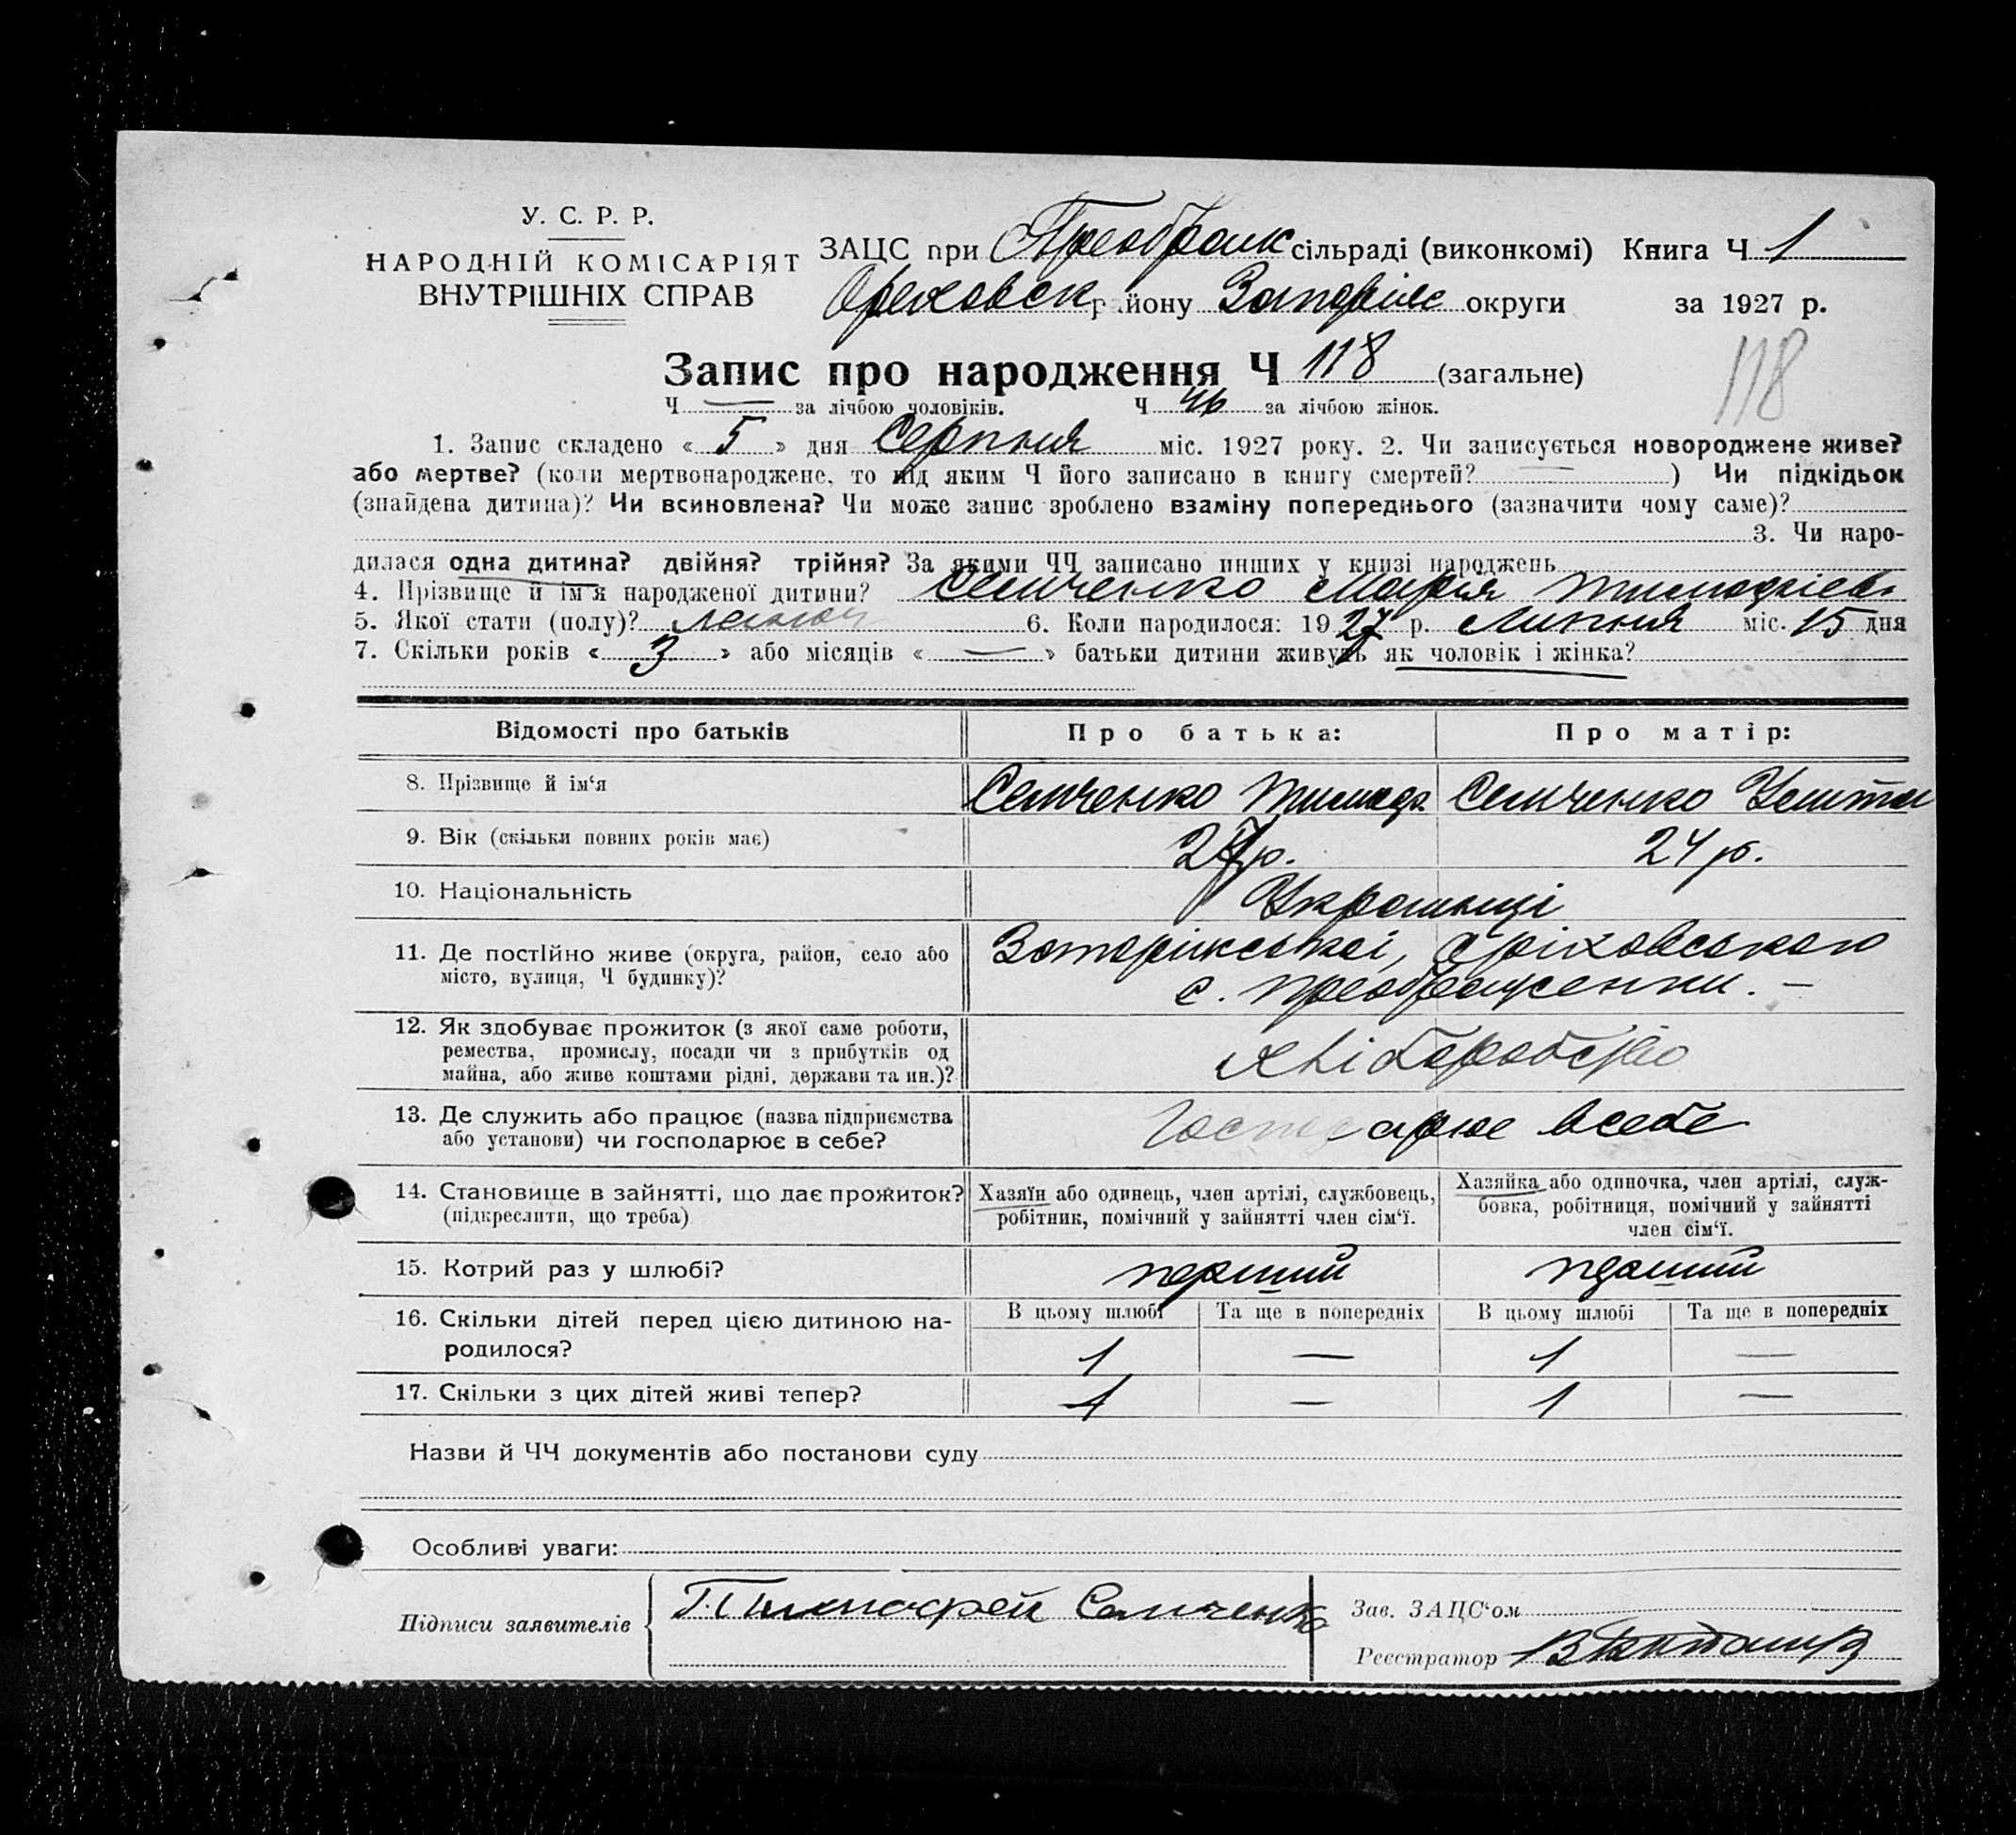 У. С. Р. Р.
НАРОДНІЙ КОМІСАРІЯТ
ВНУТРІШНІХ СПРАВ
ЗАЦС при Преображ сільраді (виконкомі) Книга Ч 1
Ореховск району Запоріж округи за 1927 р.
118
Запис про народження Ч 118 (загальне)
Ч — за лічбою чоловіків. Ч 46 за лічбою жінок.
1. Запис складено « 5 » дня Серпня міс. 1927 року. 2. Чи записується новороджене живе?
або мертве? (коли мертвонароджене, то під яким Ч його записано в книгу смертей? — ) Чи підкідьок
(знайдена дитина)? Чи всиновлена? Чи може запис зроблено взаміну попереднього (зазначити чому саме)?
3. Чи наро-
дилася одна дитина? двійня? трійня? За якими ЧЧ записано инших у книзі народжень
4. Прізвище й ім'я народженої дитини? Семченко Марія
5. Якої стати (полу)? 6. Коли народилося: 1927 р. Липня міс. 15 дня
7. Скільки років « 3 » або місяців « — » батьки дитини живуть як чоловік і жінка?
Відомості про батьків Про батька: Про матір:
8. Прізвище й ім'я Семченко Тимофр Семченко
9. Вік (скільки повних років має) 27р. 24 р.
10. Національність Українці
11. Де постійно живе (округа, район, село або Запоріжської, Оріховського
місто, вулиця, Ч будинку)? с. Преображенки. —
12. Як здобуває прожиток (з якої саме роботи, Хліборобство
ремества, промислу, посади чи з прибутків од
майна, або живе коштами рідні, держави та ин.)?
13. Де служить або працює (назва підприємства Господарює в себе
або установи) чи господарює в себе?
14. Становище в зайнятті, що дає прожиток? Хазяїн або одинець, член артілі, службовець, Хазяйка або одиночка, член артілі, служ-
(підкреслити, що треба) робітник, помічний у зайнятті член сім'ї. бовка, робітниця, помічний у зайнятті
член сім'ї.
15. Котрий раз у шлюбі? перший перший
16. Скільки дітей перед цією дитиною на- В цьому шлюбі Та ще в попередніх В цьому шлюбі Та ще в попередніх
родилося? 1 — 1 —
17. Скільки з цих дітей живі тепер? 1 — 1 —
Назви й ЧЧ документів або постанови суду
Особливі уваги:
Підписи заявителів Тимофей Семченко Зав. ЗАЦС'ом
Реєстратор